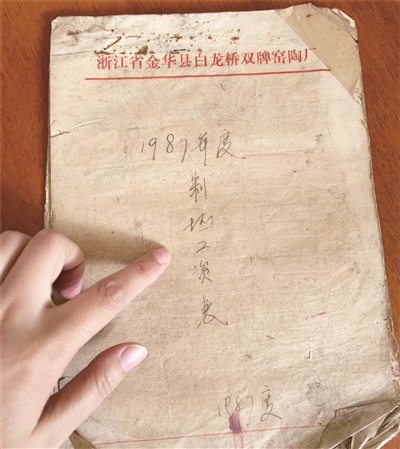 浙江省金华县白龙桥双牌窑陶厂
1987年度
制
坯
工
资
表
1987度